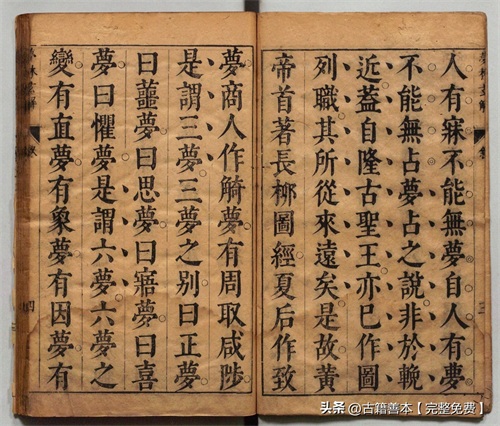 夢林玄解
卷
三
人有寐不能無夢自人有夢
不能無占夢占之說非於輓
近蓋自隆古聖王亦巳作圖
列職其所從來遠矣是故黃
帝首著長柳圖經夏后作致
夢商人作觭夢有周取咸陟
是謂三夢三夢之別曰正夢
曰蘁夢曰思夢曰寤夢曰喜
夢曰懼夢是謂六夢六夢之
變有直夢有象夢有因夢有
夢林玄解
卷
四
头条 @古籍善本【完整免费】